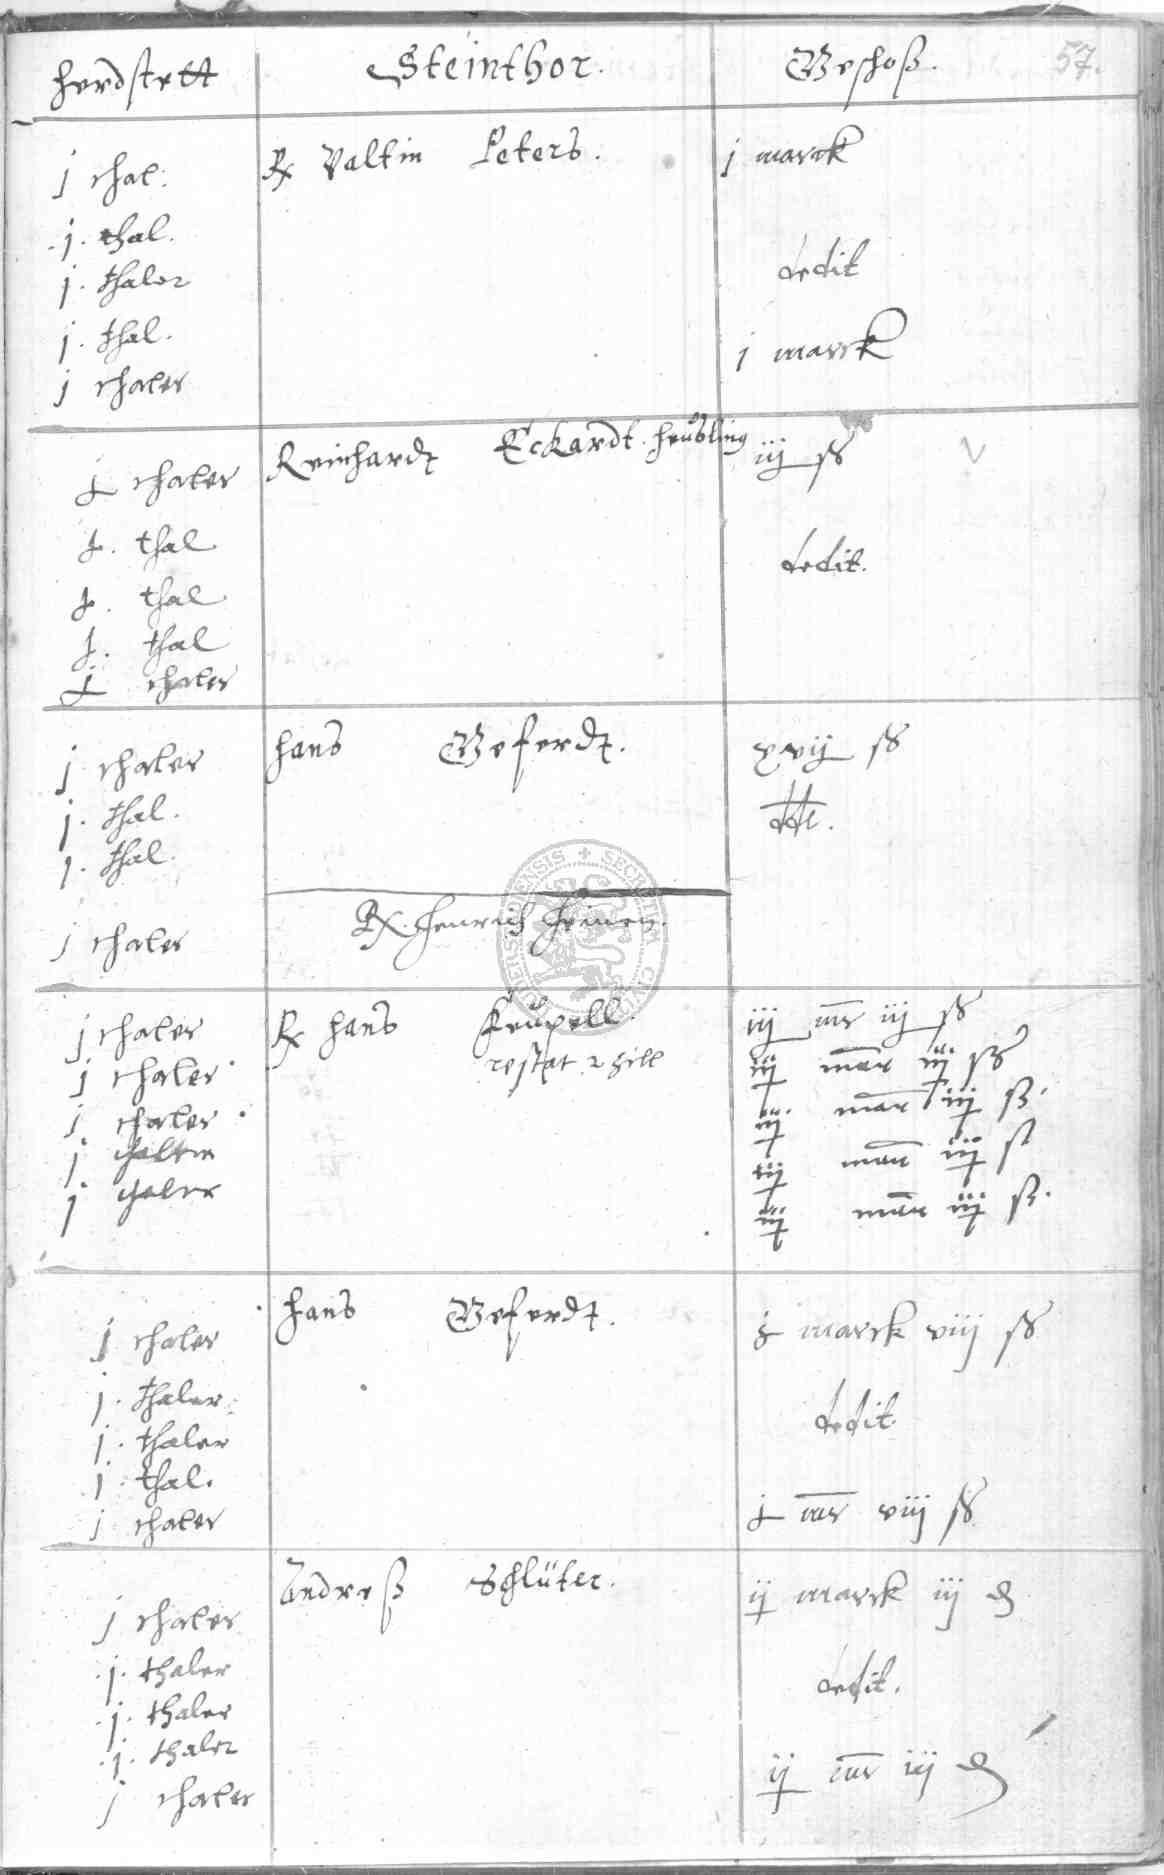 herdstett Steinthor. Geschoß. 57.
j thal: Rx Valtin Peters. j marck
.j. thal.
j. thaler dedit
j. thal. j marck
j thaler
thaler Reinhardt Eckardt heußling iij ß
thal
thal dedit.
thal
thaler
j thaler hans Geferdt. xvij ß
j. thal. ddt.
j. thal.
j thaler Rx Henrich
j thaler Rx hans iij mr iij ß
j thaler restat 2 iij mar iij ß
j thaler iij mar iij ß.
j thaler iij mar iij ß
j thaler iij mar iij ß.
j thaler hans Geferdt. marck viij ß
j. thaler dedit.
j. thaler
j. thal.
j thaler mr viij ß
j thaler Andreß Schlüter. ij marck iij d
.j. thaler
.j. thaler dedit.
.j. thaler
j thaler ij mr iij d